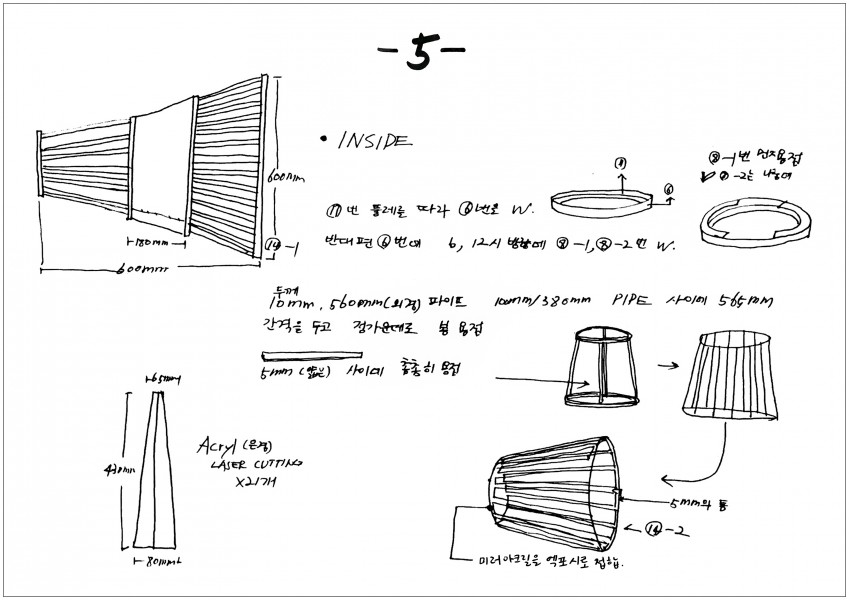 -5-
• INSIDE
600mm
180mm
600mm
⑭-1
⑪번 둘레를 따라 ⑥번을 W.
반대편 ⑥번에 6, 12시 방향에 ⑧-1, ⑧-2번 W.
⑪
⑥
⑧-1번 먼저용접
-2는 나중에
두께
10mm, 560mm(외경) 파이프 10mm/380mm PIPE 사이에 565mm
간격을 두고 정가운데로 봉 용접
5mm (얇은) 사이에 촘촘히 용접
65mm
430mm
80mm
Acryl (은경)
LASER CUTTING
x21개
5mm의 봉
⑭-2
미러아크릴을 엑폭시로 접합.